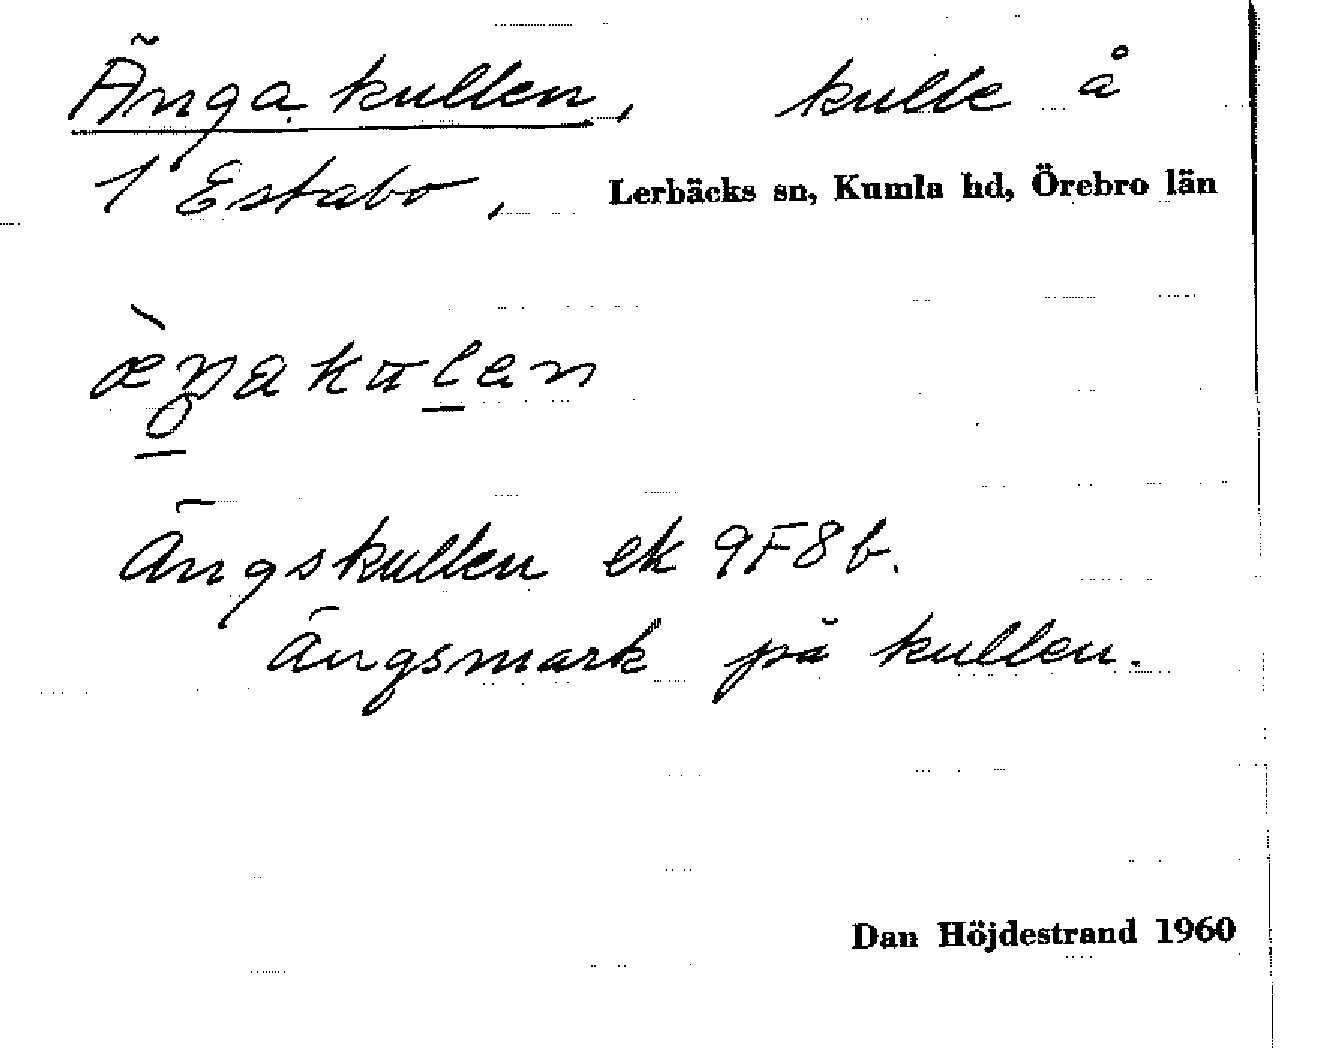 Ängakullen, kulle å
1 Estabo, Lerbäcks sn, Kumla hd, Örebro län
æ̀ŋakulen
Ängskullen ek 9F8b.
Ängsmark på kullen.
Dan Höjdestrand 1960